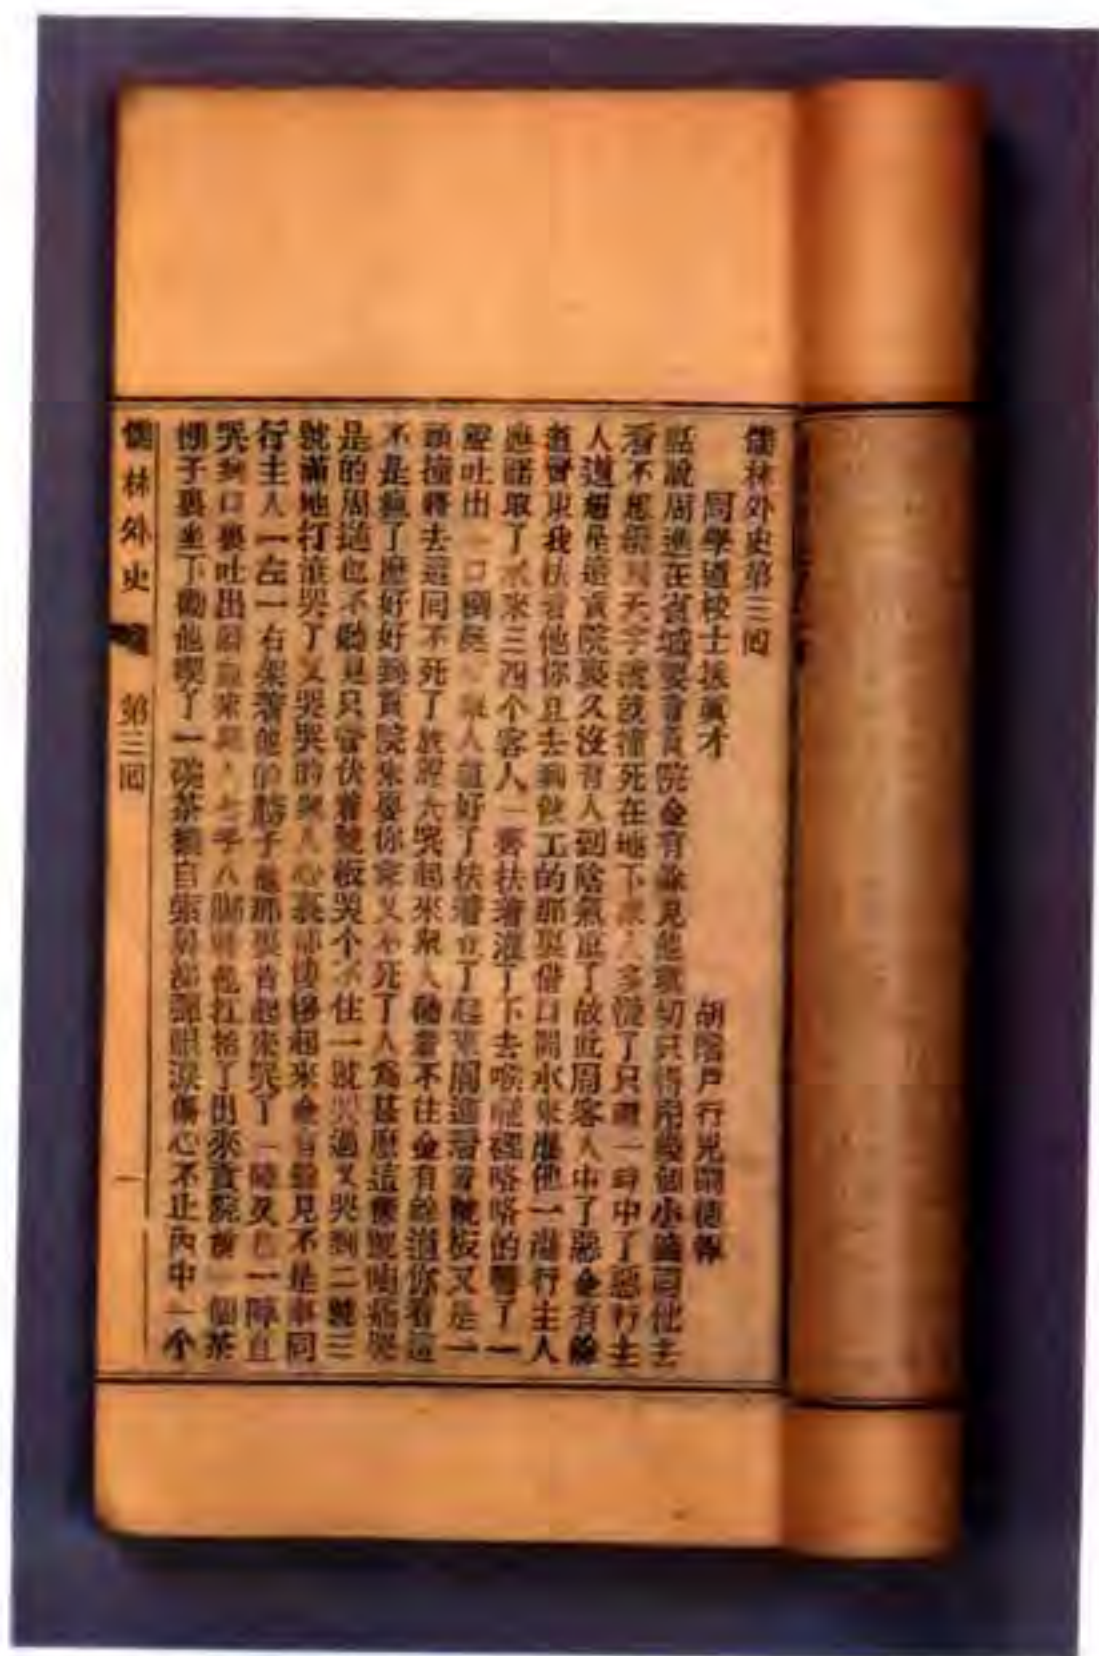 儒林外史第三回
周學道校士拔眞才 胡屠戶行兇鬧捷報
話說周進在省城要看貢院金有餘見他眞切只得用幾個小錢同他去
看不想纔到天字號就撞死在地下衆人多慌了只道一時中了惡行主
人道想是這貢院裏久沒有人到陰氣重了故此周客人中了惡金有餘
道賢東我扶着他你且去到做工的那裏借口開水來灌他一灌行主人
應諾取了水來三四个客人一齊扶着灌了下去喉嚨裏咯咯的響了一
聲吐出一口稠涎來衆人道好了扶着立了起來周進看着號板又是一
頭撞將去這回不死了放聲大哭起來衆人勸着不住金有餘道你看這
不是瘋了麽好好到貢院來耍你家又不死了人爲甚麽這樣號啕痛哭
是的周進也不聽見只管伏着號板哭个不住一號哭過又哭到二號三
號滿地打滾哭了又哭哭的衆人心裏都悽慘起來金有餘見不是事同
行主人一左一右架着他的膀子他那裏肯起來哭了一陣又是一陣直
哭到口裏吐出鮮血來衆人七手八脚將他扛擡了出來貢院前一個茶
棚子裏坐下勸他喫了一碗茶猶自索鼻涕彈眼淚傷心不止內中一个
儒林外史 第三回 一